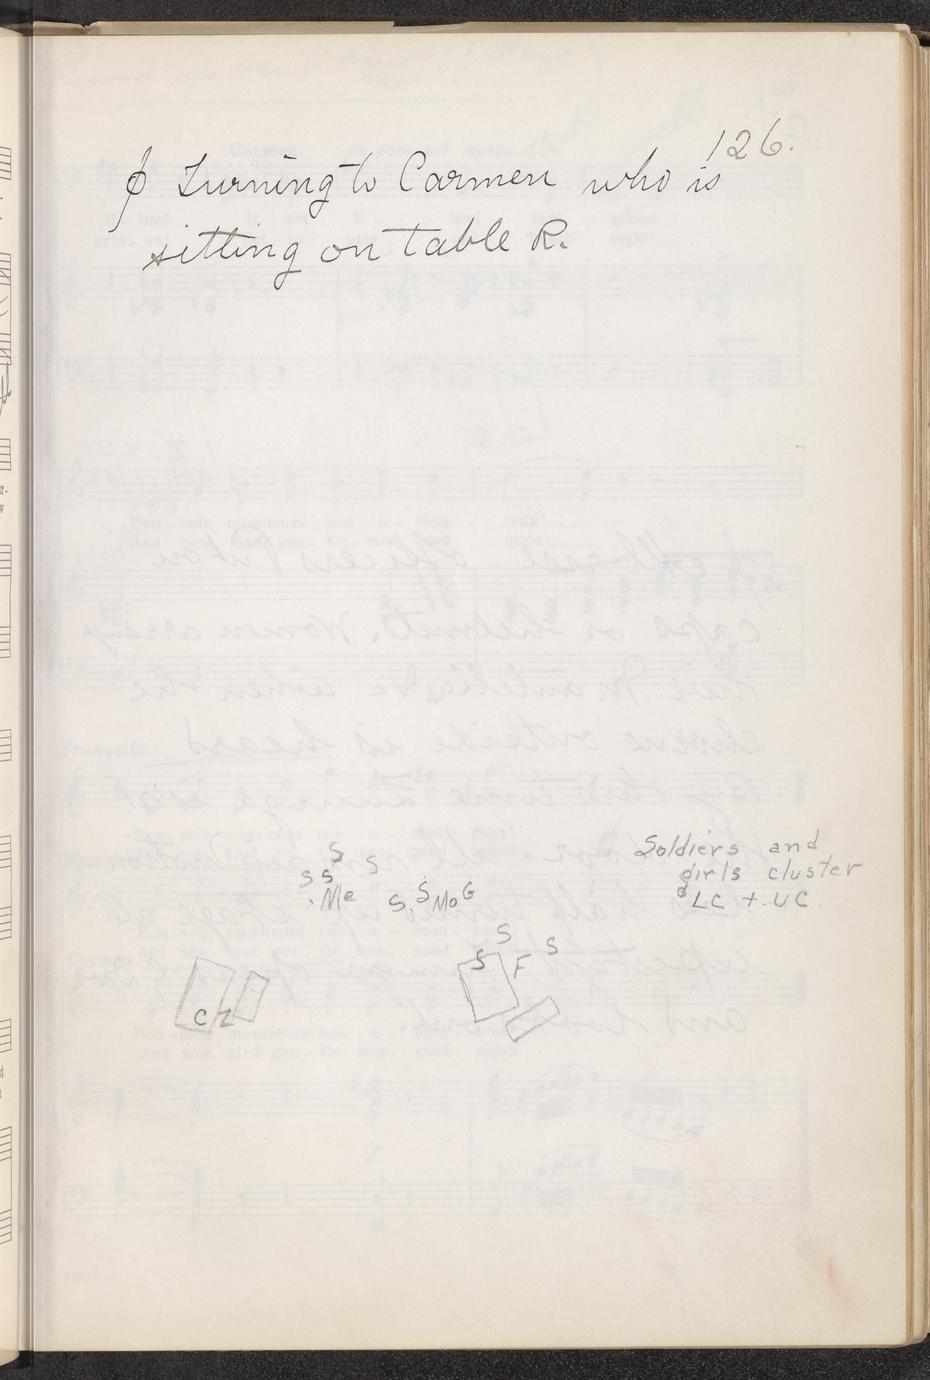 126.
ϕ Turning to Carmen who is
sitting on table R.
Soldiers and
girls cluster
LC + UC
S
S S S
Me S. S Mo G
S
S F S
C Z